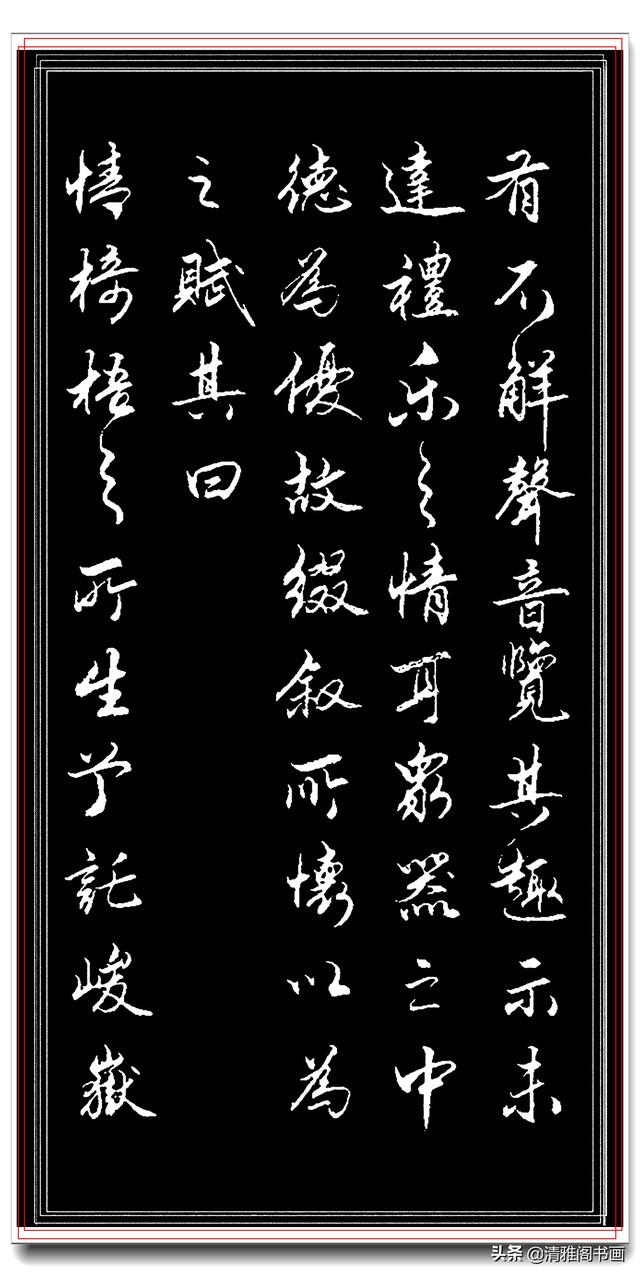 有不解聲音覽其趣示未
達禮乐之情耳眾器之中
德為優故綴叙所懷以為
之賦其曰
情椅梧之所生兮託峻嶽
头条 @清雅阁书画